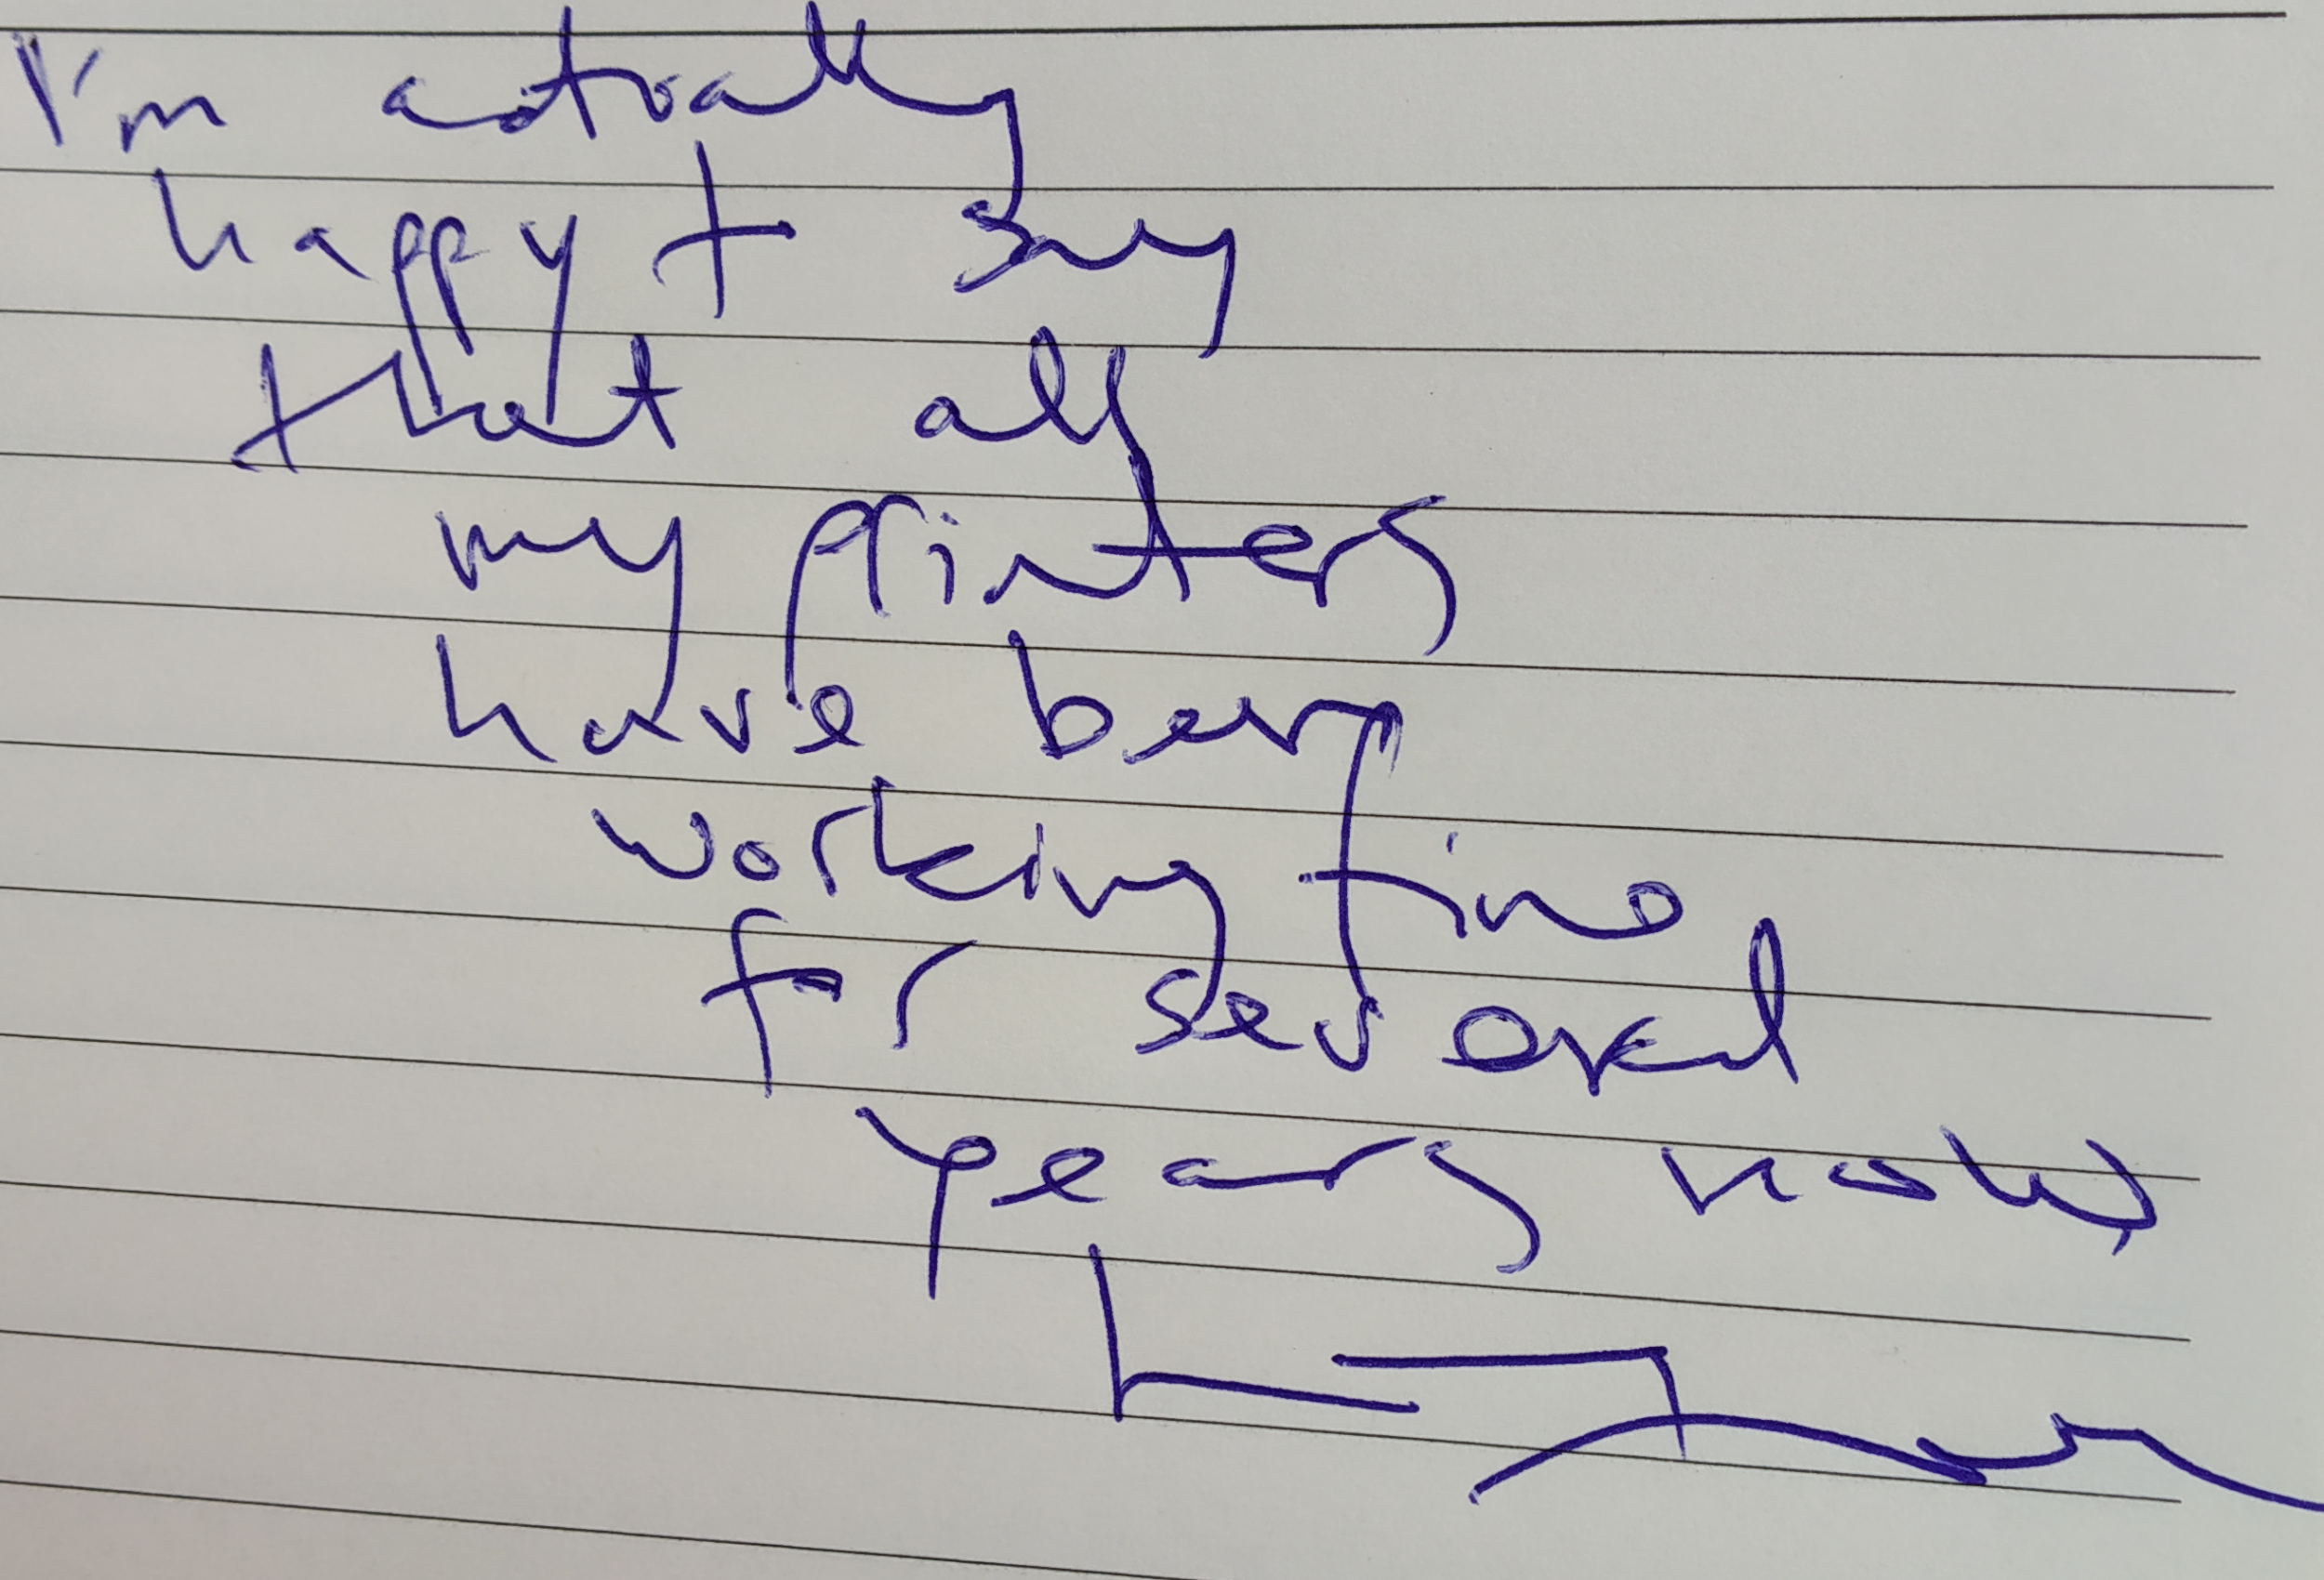 I'm actually
happy to say
that all
my printers
have been
working fine
for several
years now,